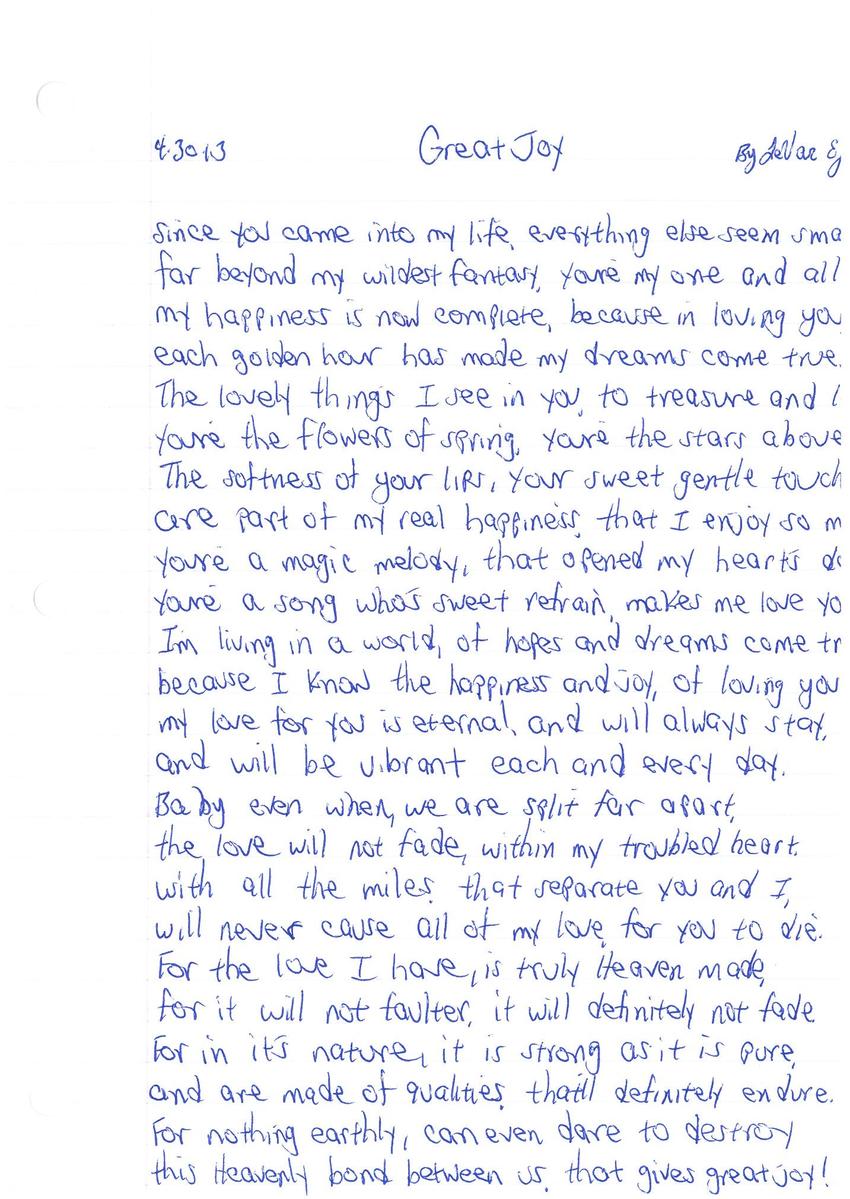 4.30.13 Great Joy By
Since you came into my life, everything else seem sma
far beyond my wildest fantasy, you're my one and all
my happiness is now complete, because in loving you
each golden hour has made my dreams come true.
The lovely things I see in you, to treasure and l
you're the flowers of spring, you're the stars above
The softness of your lips, your sweet gentle touch
are part of my real happiness, that I enjoy so m
you're a magic melody, that opened my heart's do
you're a song who's sweet refrain, makes me love yo
I'm living in a world, of hopes and dreams come tr
because I know the happiness and joy, of loving you
my love for you is eternal, and will always stay,
and will be vibrant each and every day.
Baby even when, we are split far apart,
the love will not fade, within my troubled heart.
with all the miles, that separate you and I,
will never cause all of my love, for you to die.
For the love I have, is truly Heaven made,
for it will not faulter, it will definitely not fade.
For in it's nature, it is strong as it is pure,
and are made of qualities, that'll definitely endure.
For nothing earthly, can even dare to destroy
this Heavenly bond between us, that gives great joy!